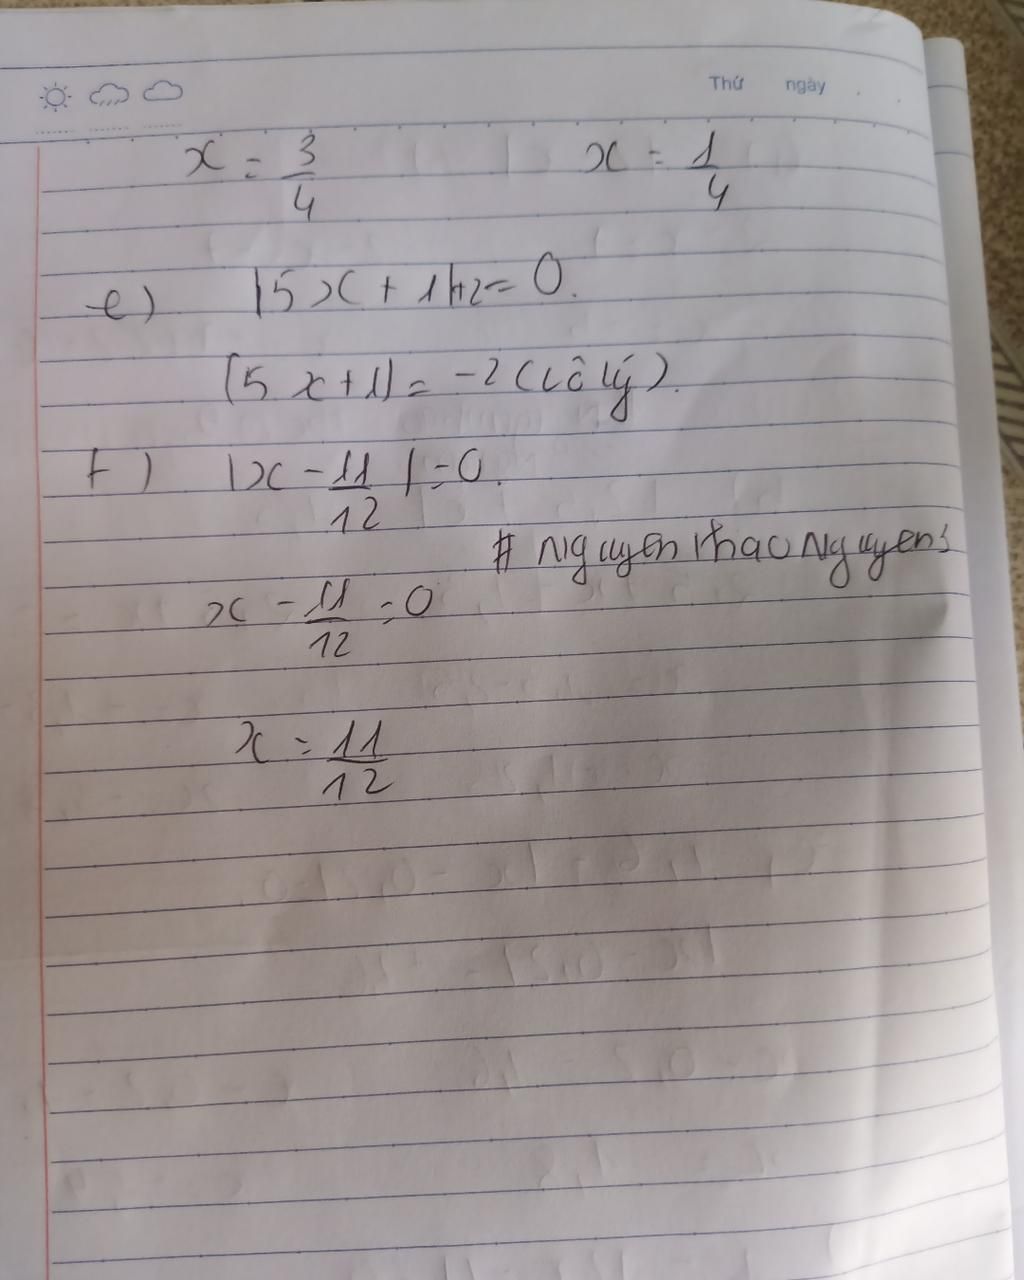 Thứ ngày
x = 3/4 x = 1/4
e) |5x + 1|+2 = 0.
|5x+1| = -2 (Vô lý).
f) |x - 11/12| = 0.
# NguyenthaoNguyen
x - 11/12 = 0
x = 11/12